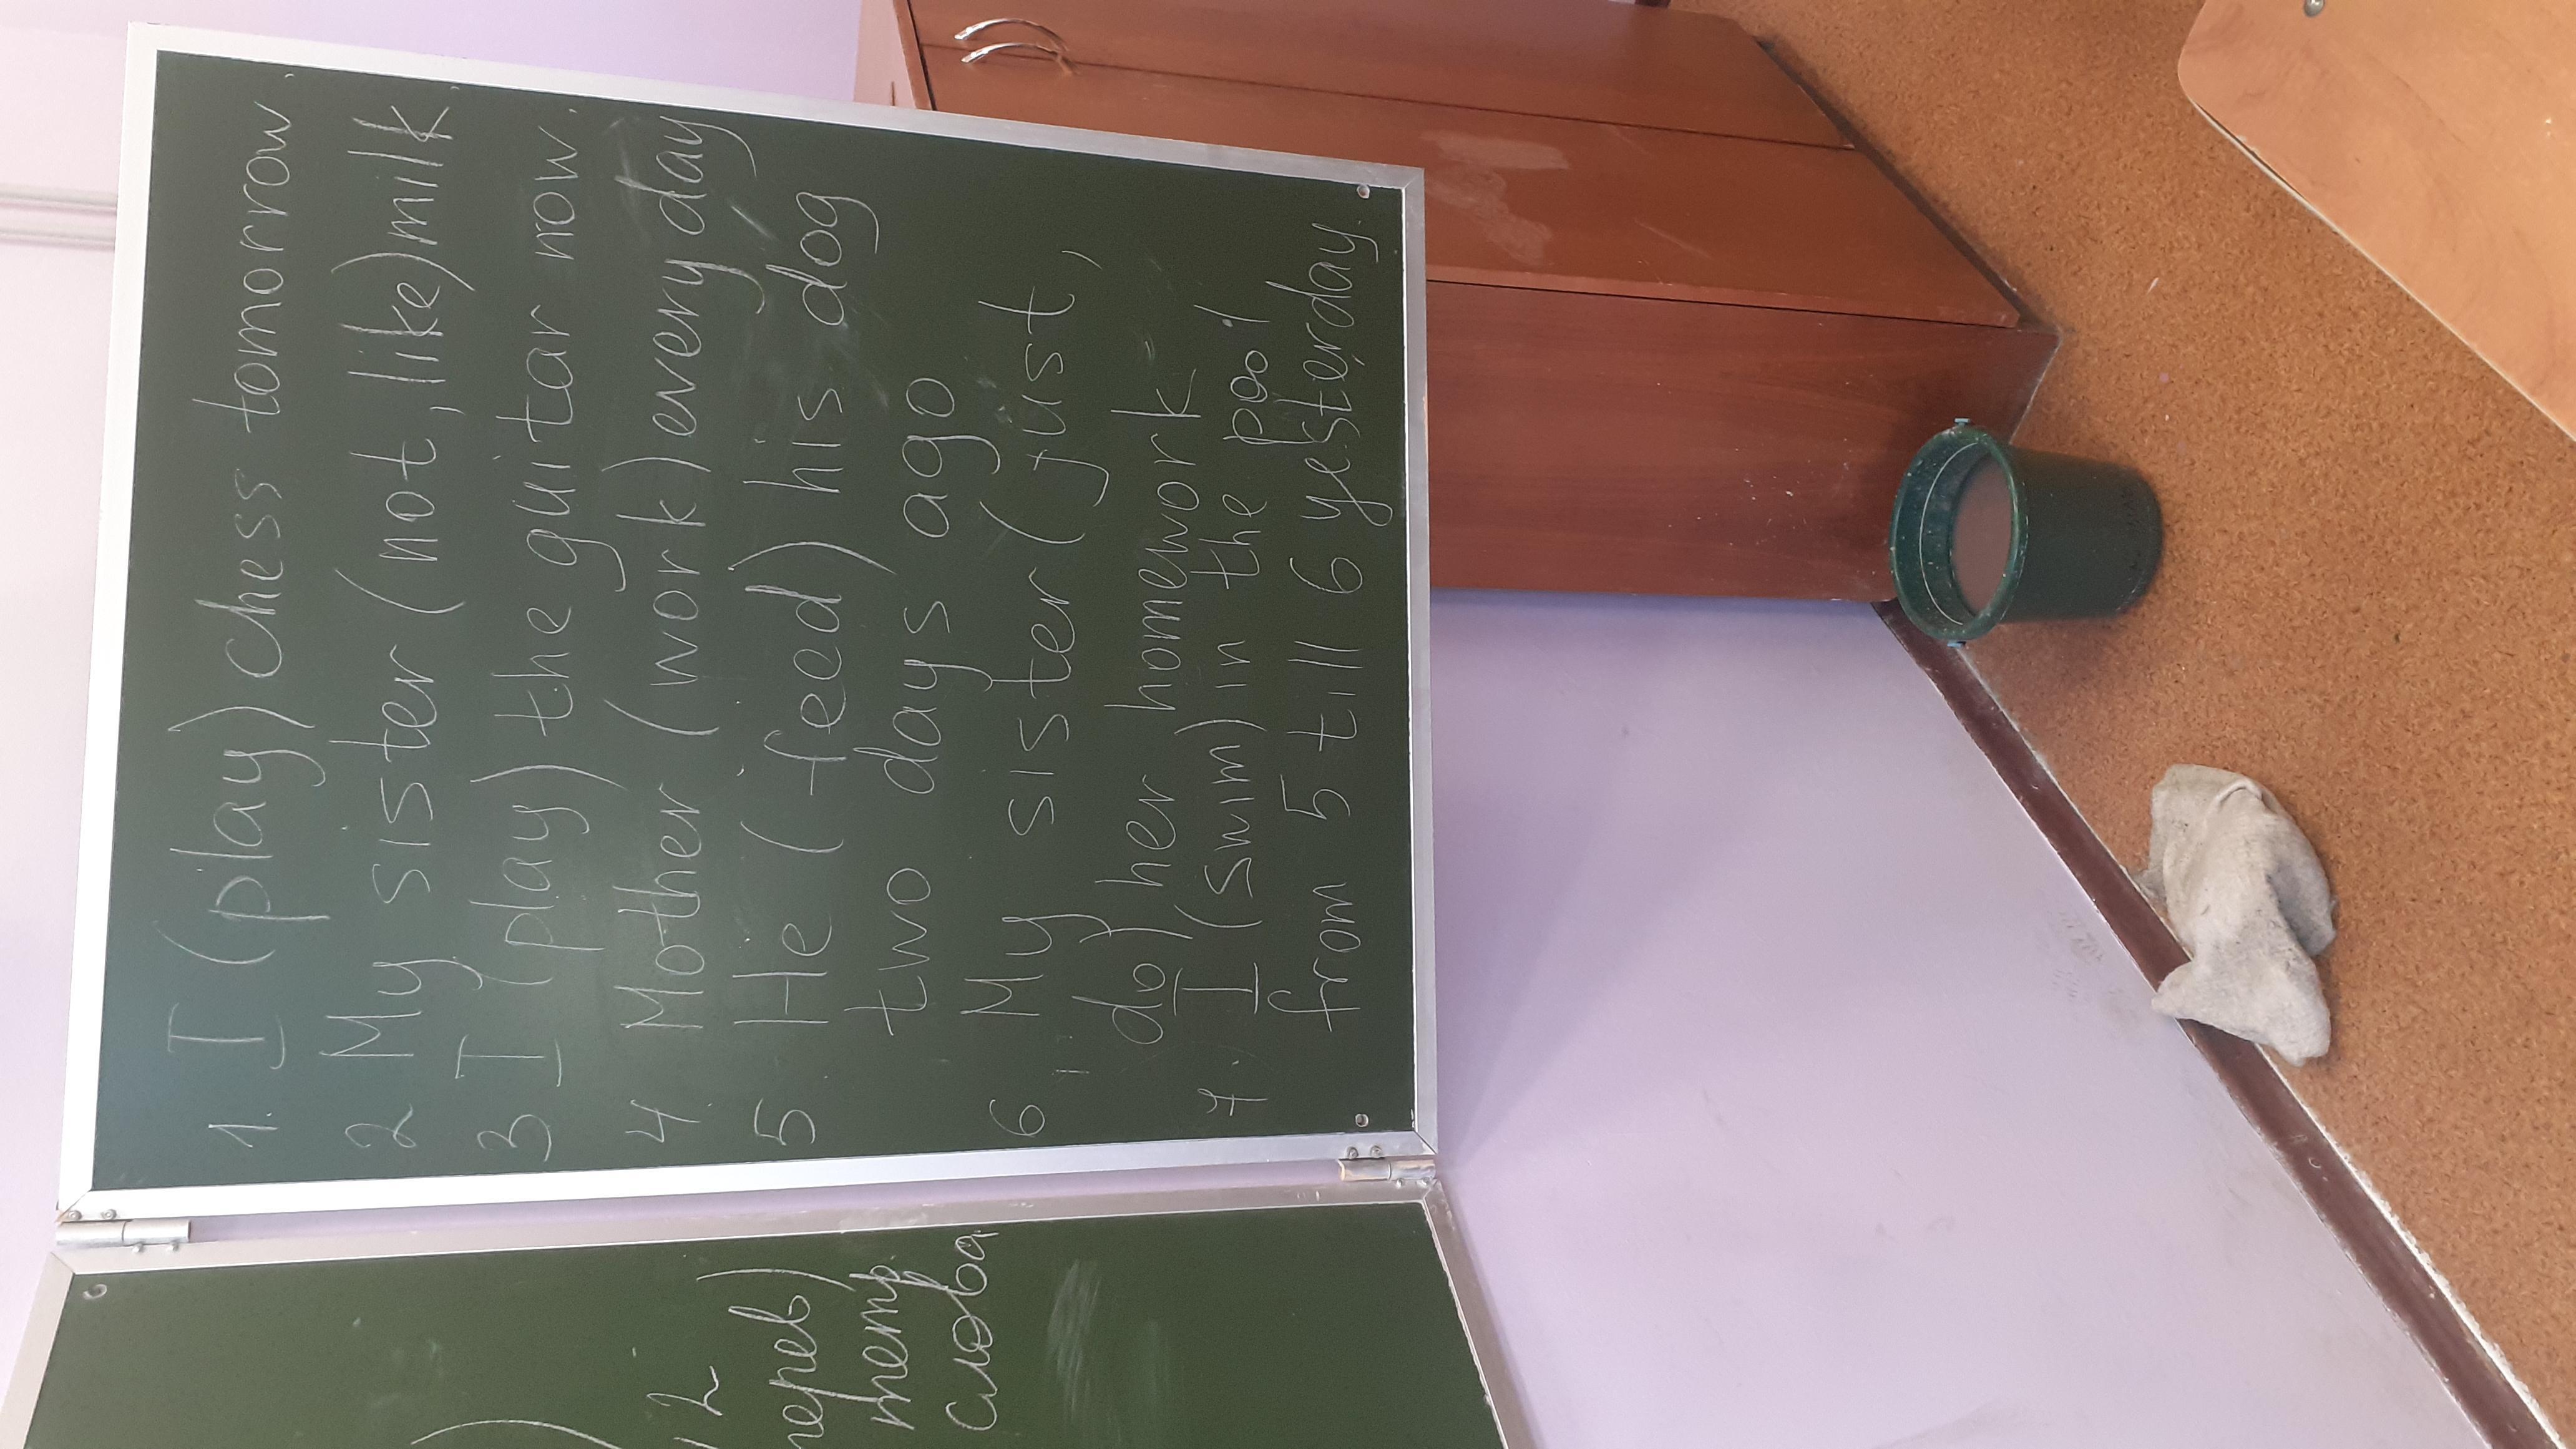 1. I (play) chess tomorrow.
2 My sister (not, like) milk.
3 I (play) the guitar now.
4. Mother (work) every day
5 He (feed) his dog
two days ago
6 My sister (just,
do) her homework
7. I (swim) in the pool
from 5 till 6 yesterday.
)
12
перев)
тетр
слова